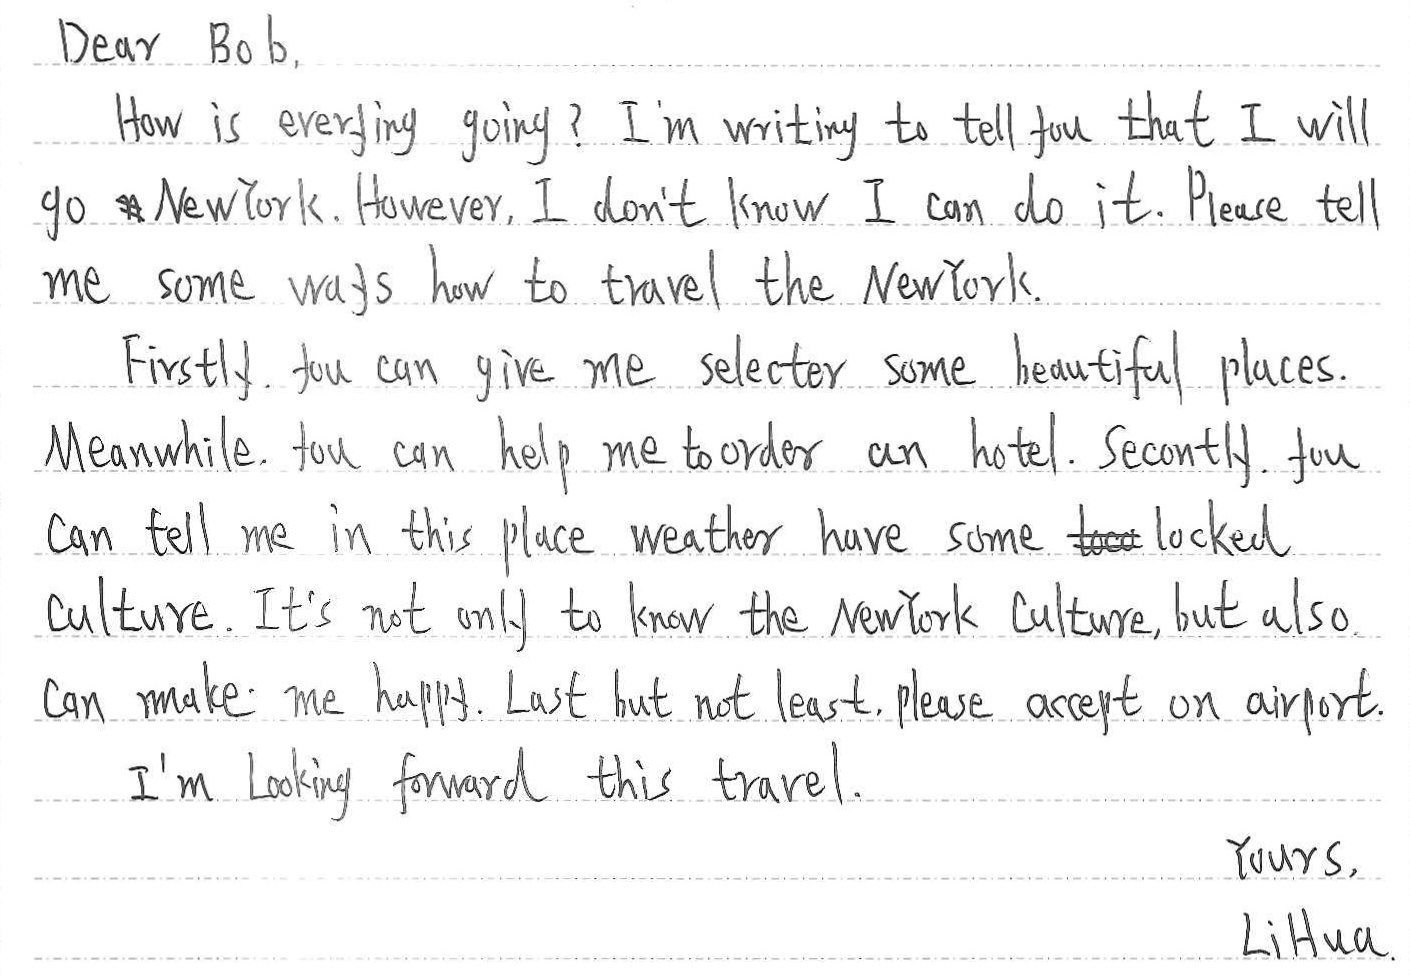 Dear Bob,
How is everying going? I'm writing to tell you that I will
go NewYork. However, I don't know I can do it. Please tell
me some ways how to travel the NewYork.
Firstly. you can give me selecter some beautiful places.
Meanwhile. you can help me to order an hotel. Secontly. you
can tell me in this place weather have some locked
culture. It's not only to know the NewYork Culture, but also
can make me happy. Last but not least. please accept on airport.
I'm Looking forward this travel.
Yours,
LiHua.